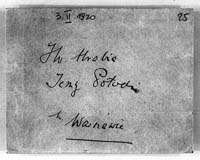 3. II 1920 25
JW. Hrabia
Jerzy Potocki
w Warszawie